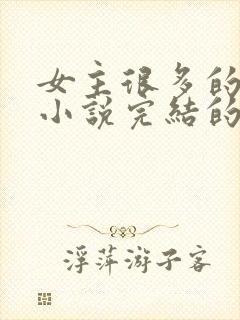 女主很多的
小說完結的
浮萍游子客